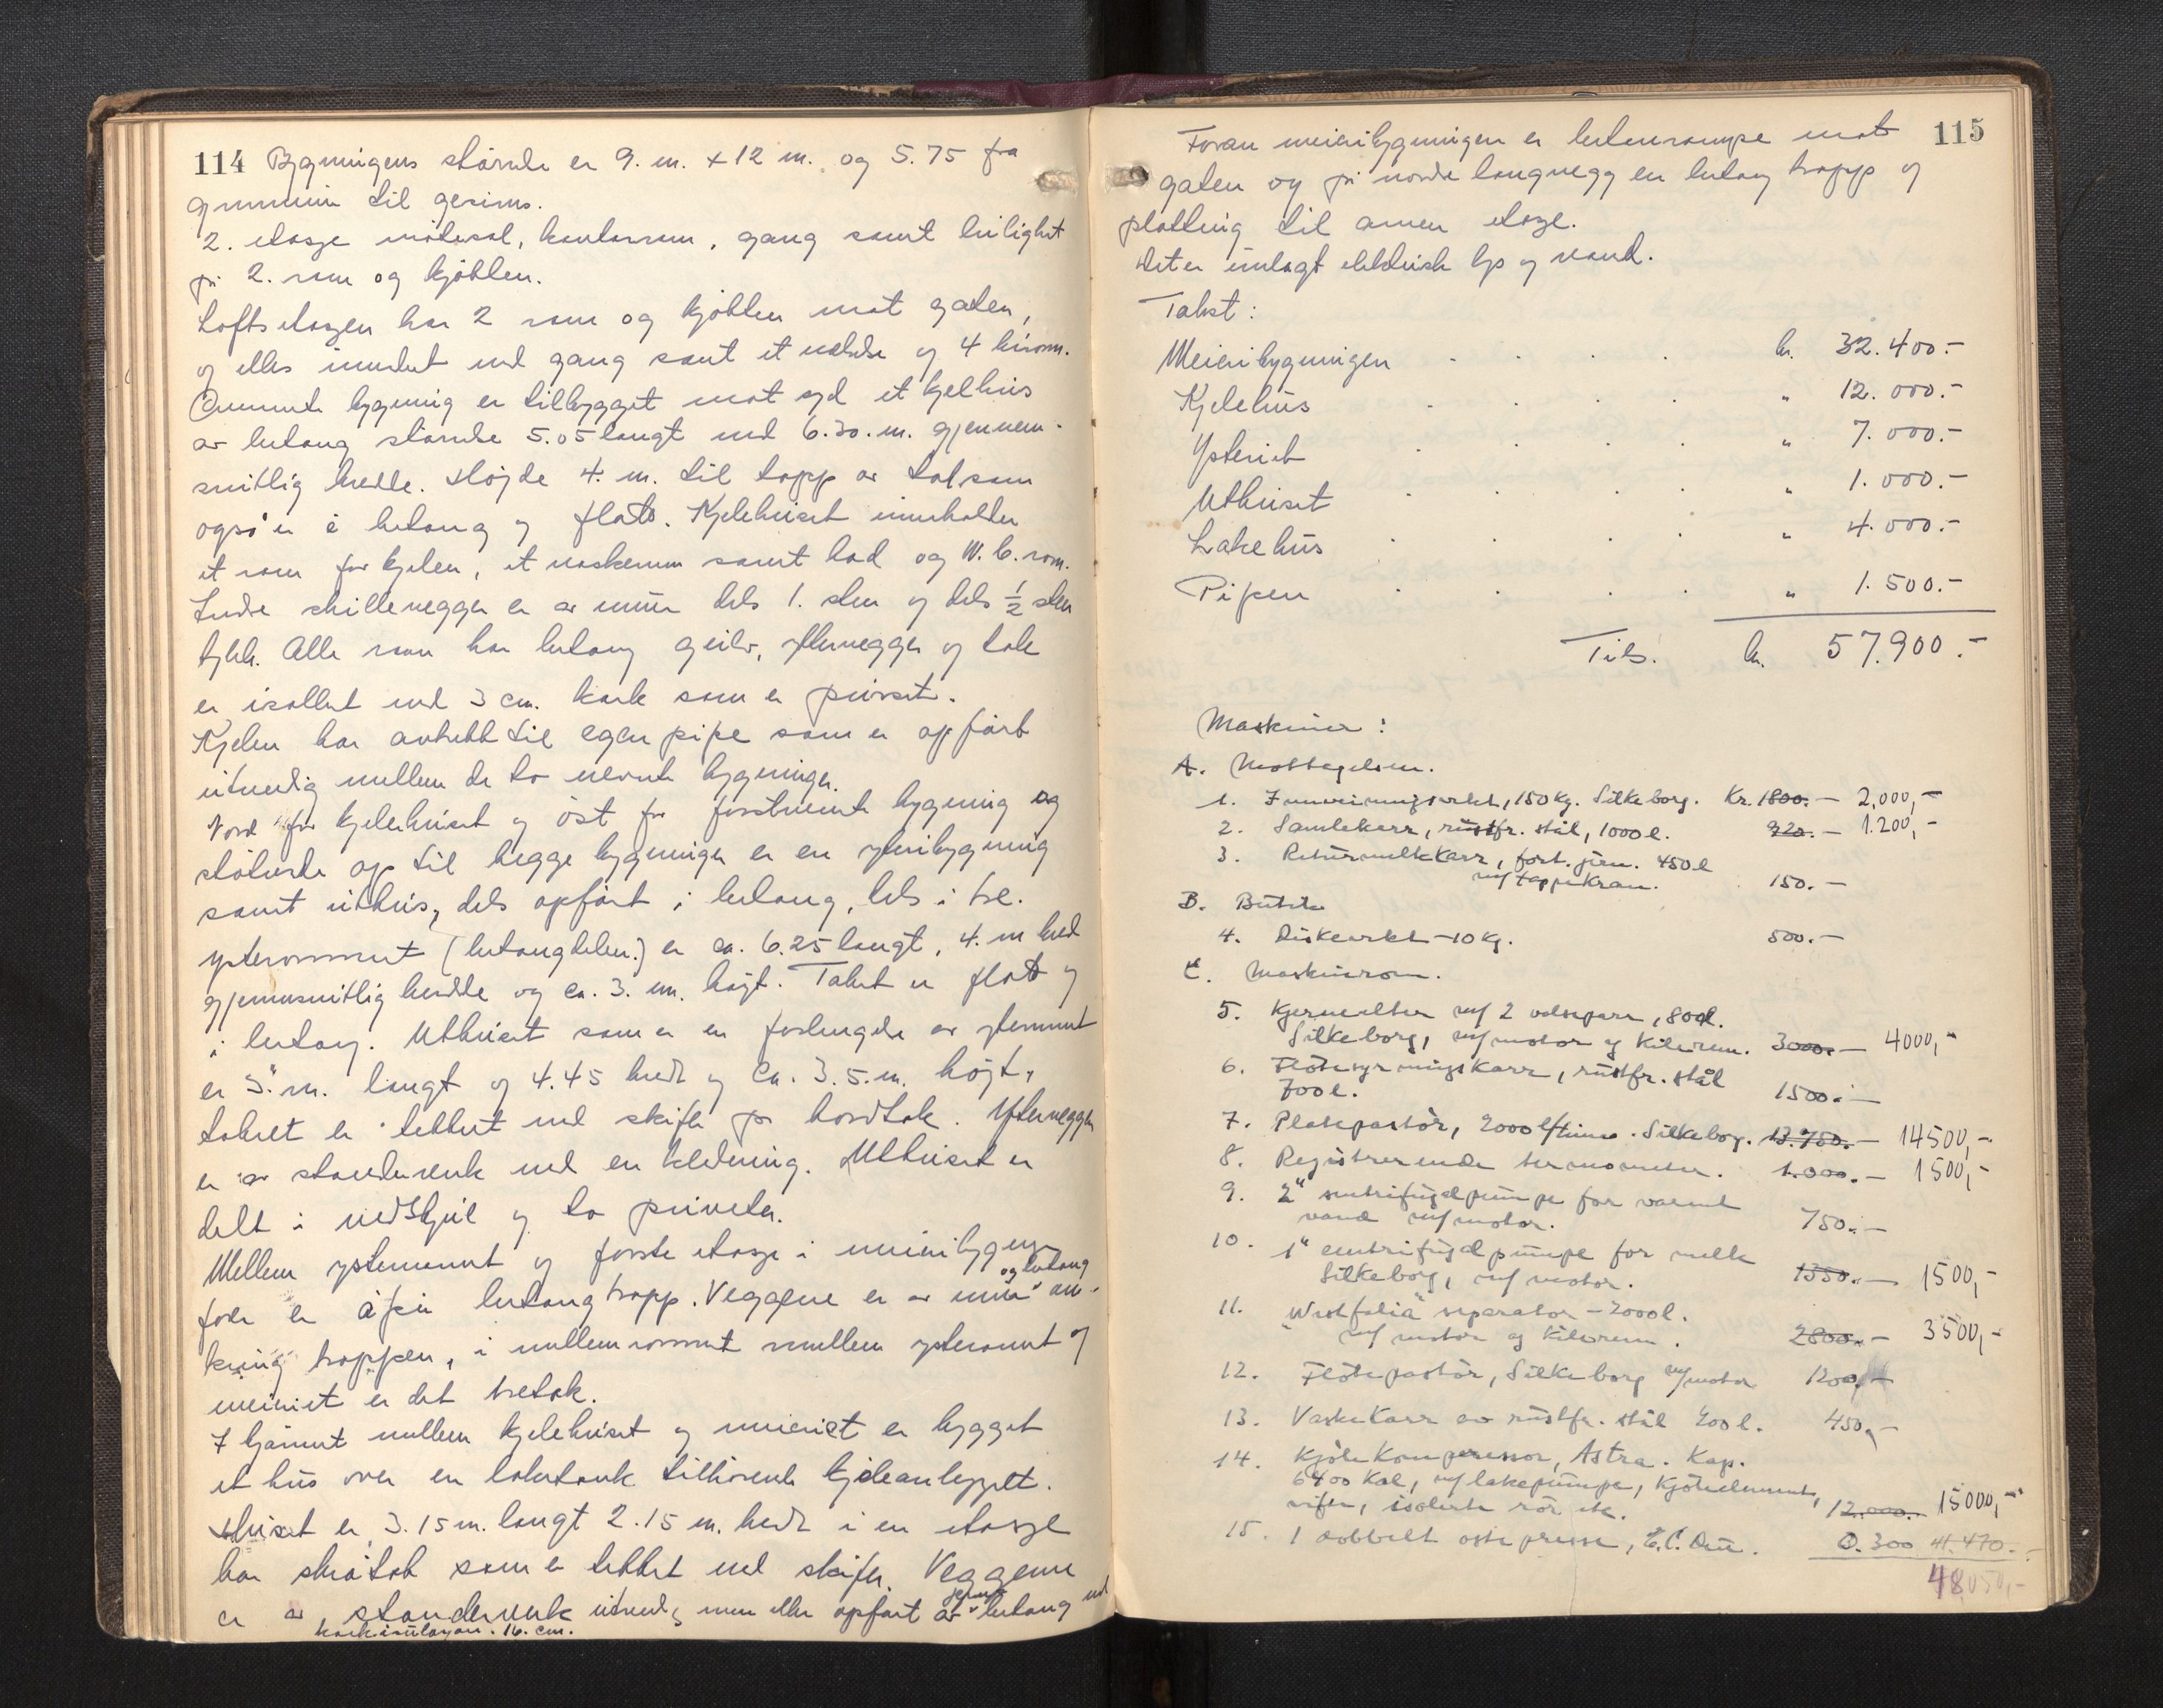 114 Bygningens størrelse er 9. m. x 12 m. og 5.75 fra
grunnmur til gesims.
2. etasje møtesal, kontorrom, gang samt leilighet
på 2. rom og kjøkken.
Loftsetasjen har 2 rom og kjøkken mot gaten,
og elles innredet med gang samt et og 4 birom.
Ovennevnte bygning er tilbygget mot syd et kjelhus
av betong størrelse 5.05 langt med 6.30. m. gjennem-
snitlig bredde. Høyde 4. m. til topp av tak som
også er i betong og flatt. Kjelehuset inneholder
et rom for kjelen, et vaskerum samt bad og W.C. rom.
Indre skillevegger er av mur dels 1. sten og dels ½ sten
tykk. Alle rom har betong golv, yttervegger og tak
er isollert med 3 cm. kork som er pusset.
Kjelen har avtrekk til egen pipe som er opført
utvendig mellem de to nevnte bygninger.
Nord for kjelehuset og øst for førstnevnte bygning og
støtende op til begge bygninger er en ysteribygning
samt uthus, dels opført i betong, dels i tre.
ysterommet (betongdelen.) er ca. 6.25 langt, 4. m bred
gjennemsnitlig bredde og ca. 3. m. høgt. Taket er flatt og
i betong. Uthuset som er en forlengelse av ysterommet
er 5. m. langt og 4.45 bredt og ca. 3.5. m. højt,
taket er tekket med skifer på bordtak. Yttervegger
er av stenderverk med en kledning. Uthuset er
delt i vedskjul og to priveter.
Mellem ysterommet og første etasje i meieribygnin
og betong
foren er åpen betongtrapp. Veggene er av mur om-
kring trappen, i mellemrommet mellem ysterommet og
meieriet er det tretak.
I hjørnet mellem kjelehuset og meieriet er bygget
et hus over en laketank tilhørende kjøleanlegget.
Huset er 3.15 m. langt 2.15 m. bredt i en etasje
har skråtak som er tekket med skifer. Veggene
er av standerverk utvendig men eller opført av betong med
korkisulasjon. 16. cm.
115
Foran meieribygningen er betongrampe mot
gaten og på nordre langvegg en betong trapp og
platting til annen etasje.
Det er innlagt elektrisk lys og vand.
Takst:
Meieribygningen . . . . kr. 32.400.-
Kjelehus . . . . " 12.000.-
Ysteriet . . . . " 7.000.-
Uthuset . . . . " 1.000.-
Lakehus . . . . " 4.000.-
Pipen . . . . " 1.500.-
Tils. kr. 57.900.-
Maskiner:
A. Mottagelsen.
1. Innveiningsvekt, 150 kg. Silkeborg. Kr. 1800.- 2,000,-
2. Samlekarr, rustfr. stål, 1000 l. 920.- 1.200,-
3. Returmelkkarr, fort. jern. 450 l
m/tappekran. 150.-
B. Butikk
4. Diskevekt - 10 kg. 500.-
C. Maskinrom.
5. Kjerneelter m/ 2 valsepar, 800 l.
Silkeborg, m/motor og kilerem. 3000.- 4000,-
6. Fløtesyrningskarr, rustfr. stål
700 l. 1500.-
7. Platepastør, 2000 l/time. Silkeborg. 13.750.- 14500,-
8. Registrerende termometer. 1.000.- 1500,-
9. 2" sentrifugalpumpe for varmt
vand m/motor. 750.-
10. 1" centrifugalpumpe for melk
Silkeborg, m/ motor. 1350.- 1500,-
11. "Westfalia" separator - 2000 l.
m/ motor og kilerem. 2800.- 3500,-
12. Fløtepastør, Silkeborg m/motor 1200.-
13. Vaskekarr av rustfr. stål 400 l. 450,-
14. Kjølekompressor, Astra. Kap.
6400 Kal, m/ lakepumpe, Kjøleelement,
vifte, isolerte rør etc. 12.000.- 15000,-
15. 1 dobbelt ostepresse, 0.300 41.470.-
48050,-